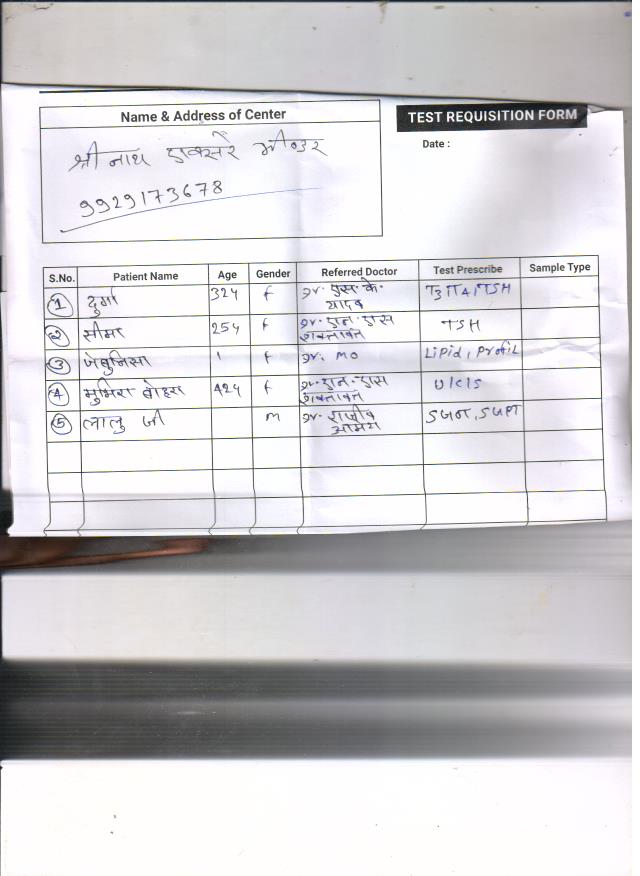 Name & Address of Center
TEST REQUISITION FORM
श्री नाथ डाक्सरे भीण्डर
Date :
9929173678
S.No. Patient Name Age Gender Referred Doctor Test Prescribe Sample Type
1 दुर्गा 32y F Dr. एस. के. यादव T3 T4 TSH
2 सीमा 25y F Dr. एन. एस TSH
3 जेबुनिसा F Dr. MO Lipid, Profil
4 बोहरा 42y F Dr. एन. एस U/C/S
5 लालु जी M Dr. राजीव SGOT, SGPT